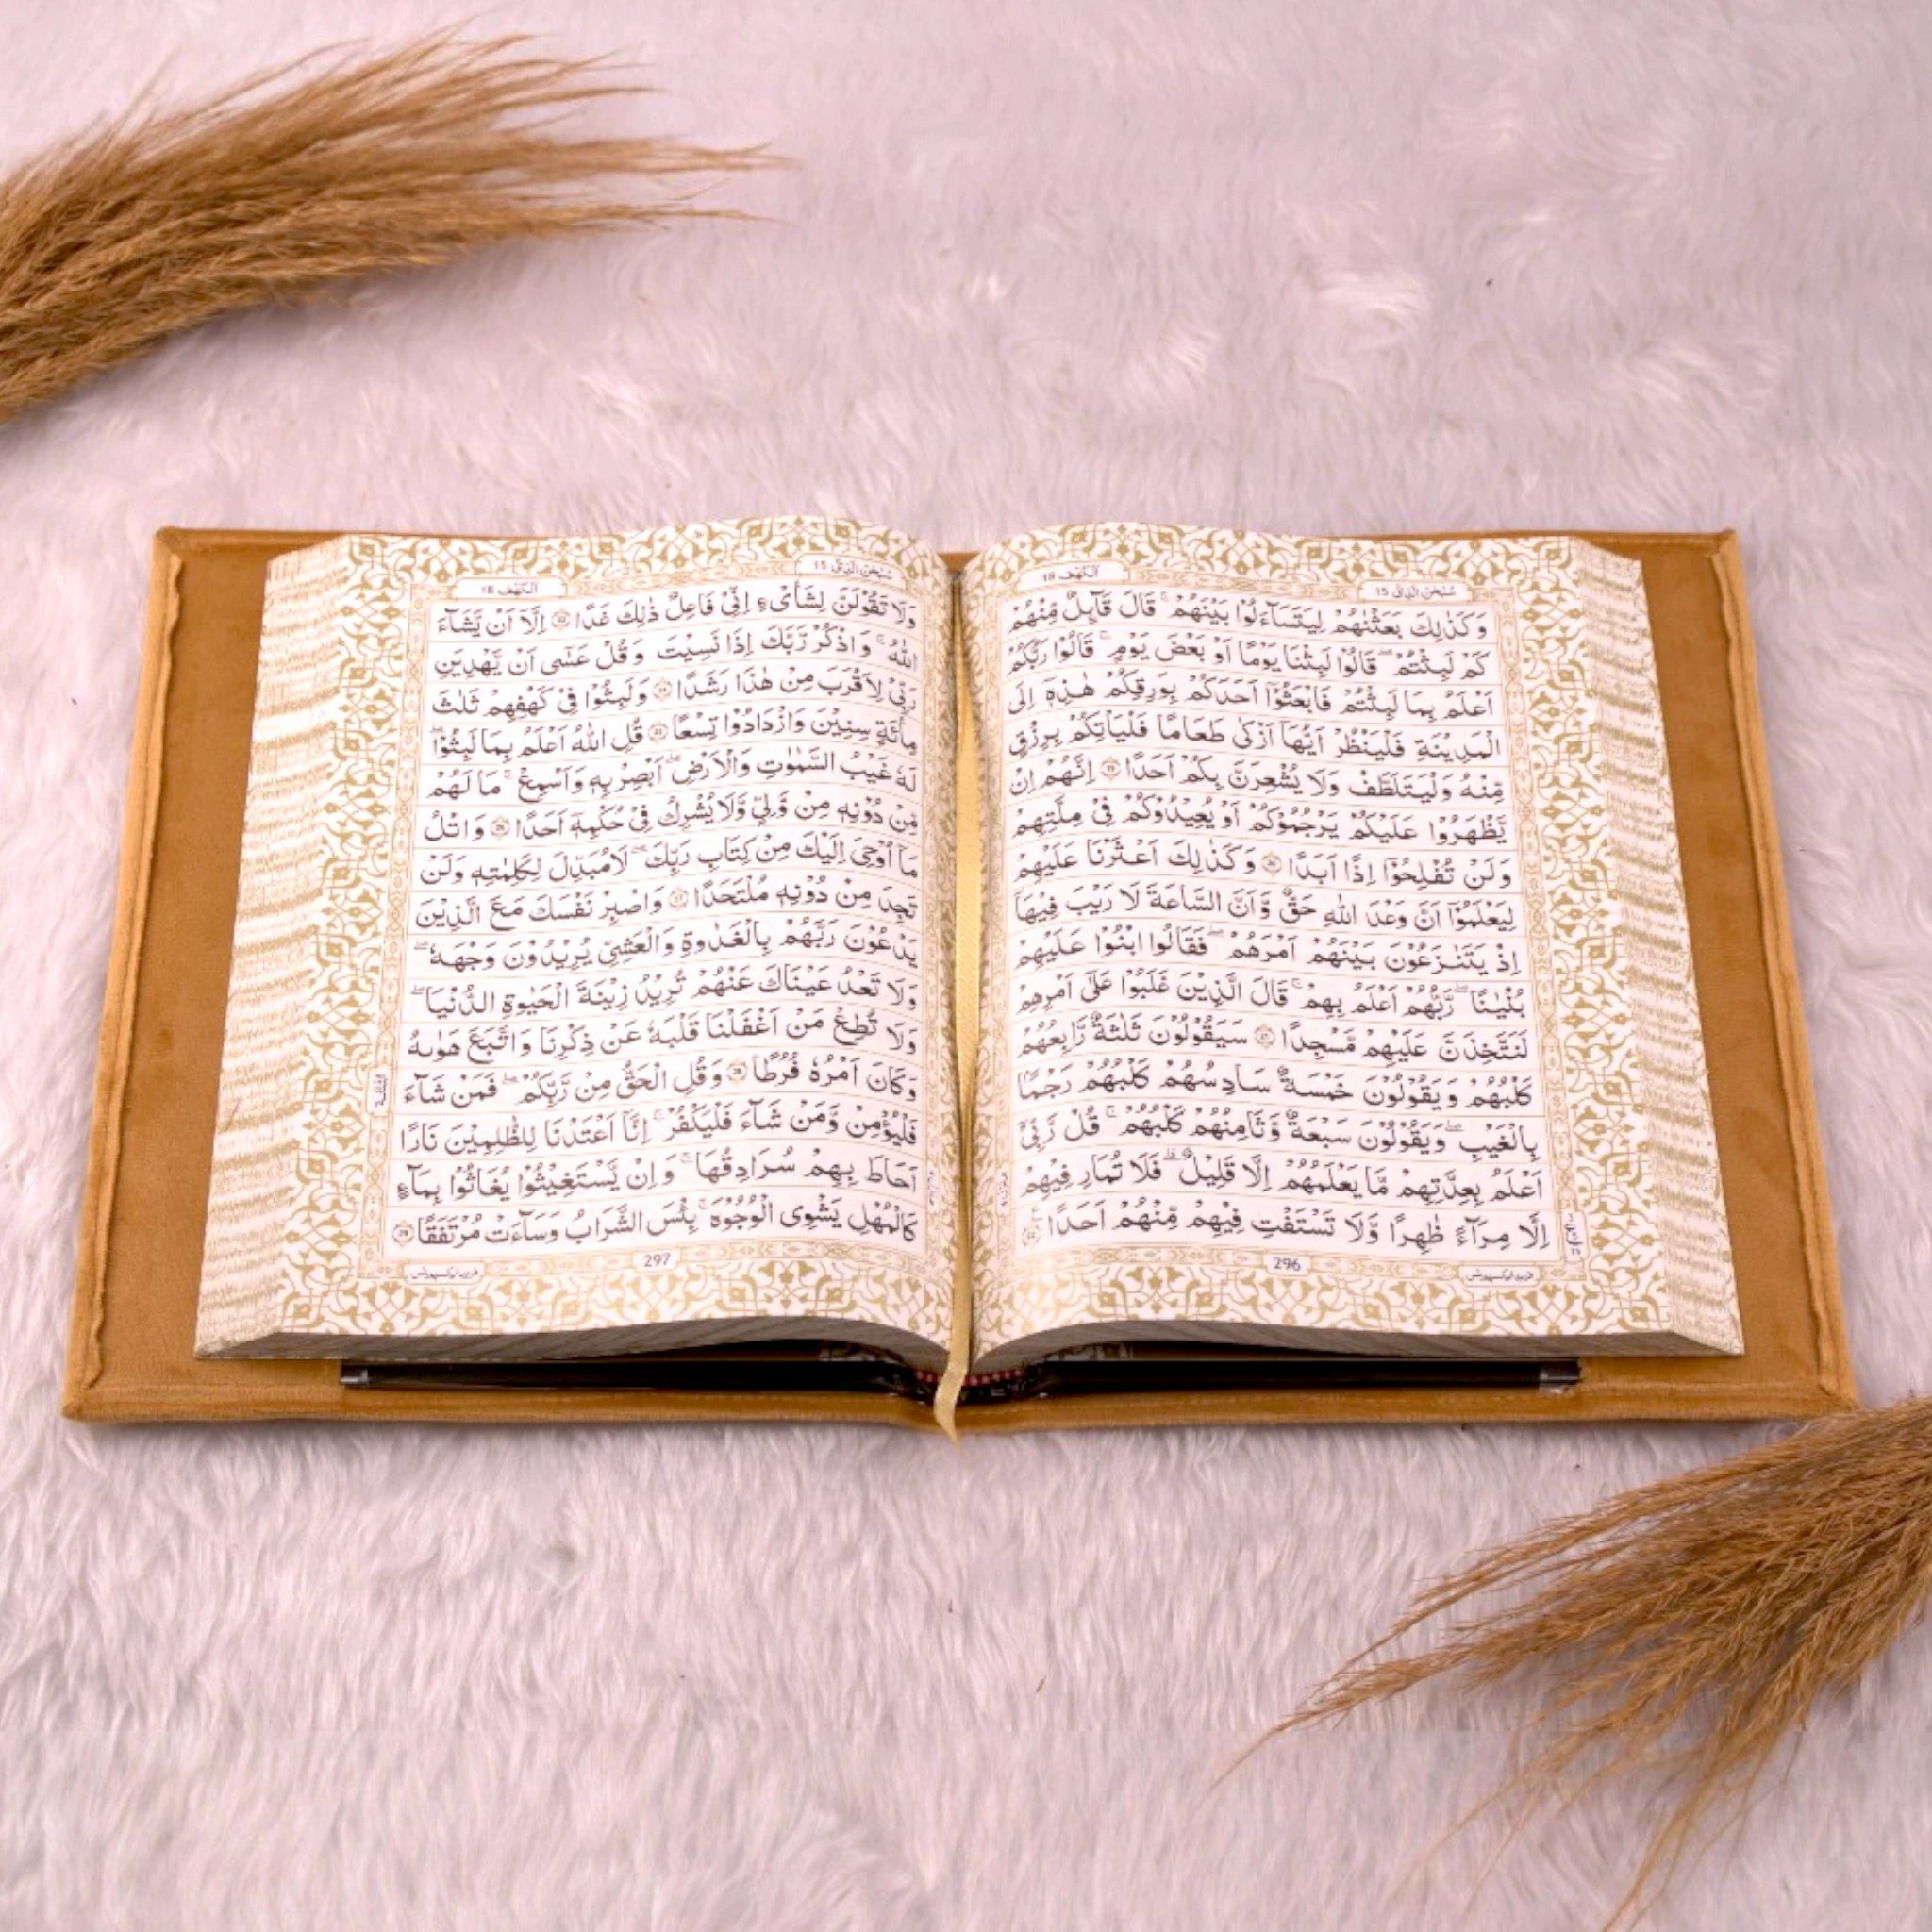 سُبْحٰنَ الَّذِیْۤ 15
اَلْكَهْف 18
وَكَذٰلِكَ بَعَثْنٰهُمْ لِیَتَسَآءَلُوْا بَیْنَهُمْ ؕ قَالَ قَآىِٕلٌ مِّنْهُمْ
كَمْ لَبِثْتُمْ ؕ قَالُوْا لَبِثْنَا یَوْمًا اَوْ بَعْضَ یَوْمٍ ؕ قَالُوْا رَبُّكُمْ
اَعْلَمُ بِمَا لَبِثْتُمْ فَابْعَثُوْۤا اَحَدَكُمْ بِوَرِقِكُمْ هٰذِهٖۤ اِلَی
الْمَدِیْنَةِ فَلْیَنْظُرْ اَیُّهَاۤ اَزْكٰی طَعَامًا فَلْیَاْتِكُمْ بِرِزْقٍ
مِّنْهُ وَلْیَتَلَطَّفْ وَلَا یُشْعِرَنَّ بِكُمْ اَحَدًا ۝۱۹ اِنَّهُمْ اِنْ
یَّظْهَرُوْا عَلَیْكُمْ یَرْجُمُوْكُمْ اَوْ یُعِیْدُوْكُمْ فِیْ مِلَّتِهِمْ
وَلَنْ تُفْلِحُوْۤا اِذًا اَبَدًا ۝۲۰ وَكَذٰلِكَ اَعْثَرْنَا عَلَیْهِمْ
لِیَعْلَمُوْۤا اَنَّ وَعْدَ اللّٰهِ حَقٌّ وَّاَنَّ السَّاعَةَ لَا رَیْبَ فِیْهَا
اِذْ یَتَنَازَعُوْنَ بَیْنَهُمْ اَمْرَهُمْ فَقَالُوا ابْنُوْا عَلَیْهِمْ
بُنْیَانًا ؕ رَبُّهُمْ اَعْلَمُ بِهِمْ ؕ قَالَ الَّذِیْنَ غَلَبُوْا عَلٰۤی اَمْرِهِمْ
لَنَتَّخِذَنَّ عَلَیْهِمْ مَّسْجِدًا ۝۲۱ سَیَقُوْلُوْنَ ثَلٰثَةٌ رَّابِعُهُمْ
كَلْبُهُمْ وَیَقُوْلُوْنَ خَمْسَةٌ سَادِسُهُمْ كَلْبُهُمْ رَجْمًۢا
بِالْغَیْبِ ۚ وَیَقُوْلُوْنَ سَبْعَةٌ وَّثَامِنُهُمْ كَلْبُهُمْ ؕ قُلْ رَّبِّیْۤ
اَعْلَمُ بِعِدَّتِهِمْ مَّا یَعْلَمُهُمْ اِلَّا قَلِیْلٌ فَلَا تُمَارِ فِیْهِمْ
اِلَّا مِرَآءً ظَاهِرًا وَّلَا تَسْتَفْتِ فِیْهِمْ مِّنْهُمْ اَحَدًا ۝۲۲
296
سُبْحٰنَ الَّذِیْۤ 15
اَلْكَهْف 18
وَلَا تَقُوْلَنَّ لِشَایْءٍ اِنِّیْ فَاعِلٌ ذٰلِكَ غَدًا ۝۲۳ اِلَّاۤ اَنْ یَّشَآءَ
اللّٰهُ ؗ وَاذْكُرْ رَّبَّكَ اِذَا نَسِیْتَ وَقُلْ عَسٰۤی اَنْ یَّهْدِیَنِ
رَبِّیْ لِاَقْرَبَ مِنْ هٰذَا رَشَدًا ۝۲۴ وَلَبِثُوْا فِیْ كَهْفِهِمْ ثَلٰثَ
مِائَةٍ سِنِیْنَ وَازْدَادُوْا تِسْعًا ۝۲۵ قُلِ اللّٰهُ اَعْلَمُ بِمَا لَبِثُوْا ۚ
لَهٗ غَیْبُ السَّمٰوٰتِ وَالْاَرْضِ ؕ اَبْصِرْ بِهٖ وَاَسْمِعْ ؕ مَا لَهُمْ
مِّنْ دُوْنِهٖ مِنْ وَّلِیٍّ وَّلَا یُشْرِكُ فِیْ حُكْمِهٖۤ اَحَدًا ۝۲۶ وَاتْلُ
مَاۤ اُوْحِیَ اِلَیْكَ مِنْ كِتَابِ رَبِّكَ ؕ لَا مُبَدِّلَ لِكَلِمٰتِهٖ وَلَنْ
تَجِدَ مِنْ دُوْنِهٖ مُلْتَحَدًا ۝۲۷ وَاصْبِرْ نَفْسَكَ مَعَ الَّذِیْنَ
یَدْعُوْنَ رَبَّهُمْ بِالْغَدٰوةِ وَالْعَشِیِّ یُرِیْدُوْنَ وَجْهَهٗ
وَلَا تَعْدُ عَیْنٰكَ عَنْهُمْ تُرِیْدُ زِیْنَةَ الْحَیٰوةِ الدُّنْیَا ۚ
وَلَا تُطِعْ مَنْ اَغْفَلْنَا قَلْبَهٗ عَنْ ذِكْرِنَا وَاتَّبَعَ هَوٰىهُ
وَكَانَ اَمْرُهٗ فُرُطًا ۝۲۸ وَقُلِ الْحَقُّ مِنْ رَّبِّكُمْ فَمَنْ شَآءَ
فَلْیُؤْمِنْ وَّمَنْ شَآءَ فَلْیَكْفُرْ ۙ اِنَّاۤ اَعْتَدْنَا لِلظّٰلِمِیْنَ نَارًا
اَحَاطَ بِهِمْ سُرَادِقُهَا ؕ وَاِنْ یَّسْتَغِیْثُوْا یُغَاثُوْا بِمَآءٍ
كَالْمُهْلِ یَشْوِی الْوُجُوْهَ ؕ بِئْسَ الشَّرَابُ وَسَآءَتْ مُرْتَفَقًا ۝۲۹
297